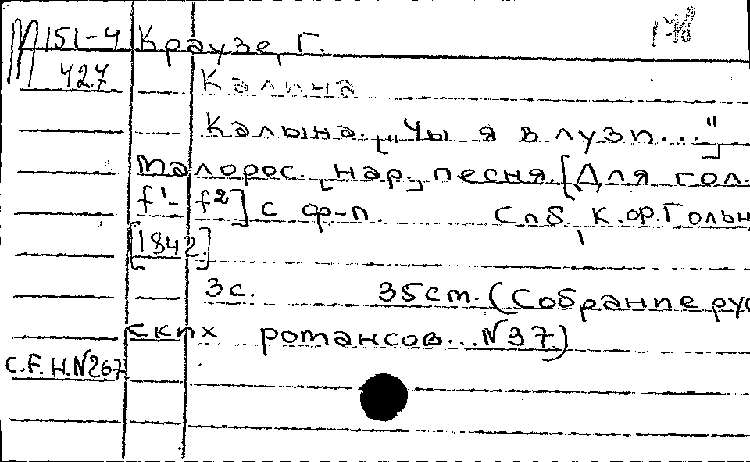 М 151-4 Краузе, Г.
427 Калина
Калына. ["Чы я в лузи..."]
Малорос. [нар.] песня. [Для гол.
f¹- f²] с ф-п. Спб, К.Ф. Гольц
[1842.]
3с. 35см. (Собрание рус
ских романсов... №37.)
C.F.H.№267